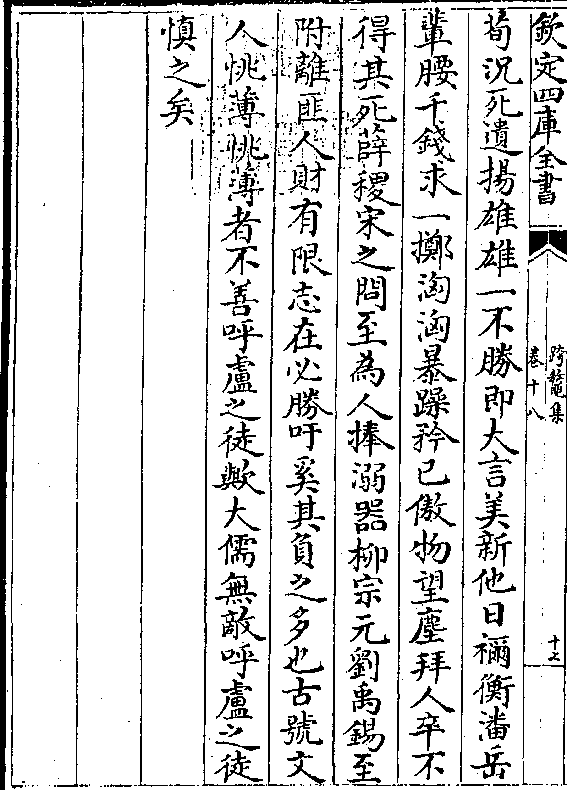 欽定四庫全書
跨鼇集
卷十八
十七
荀況死遺揚雄雄一不勝即大言美新他日禰衡潘岳
輩腰千錢求一擲洶洶暴躁矜已傲物望塵拜人卒不
得其死薛稷宋之問至為人捧溺器柳宗元劉禹錫至
附離匪人財有限志在必勝吁奚其負之多也古號文
人恌薄恌薄者不善呼盧之徒歟大儒無敵呼盧之徒
慎之矣